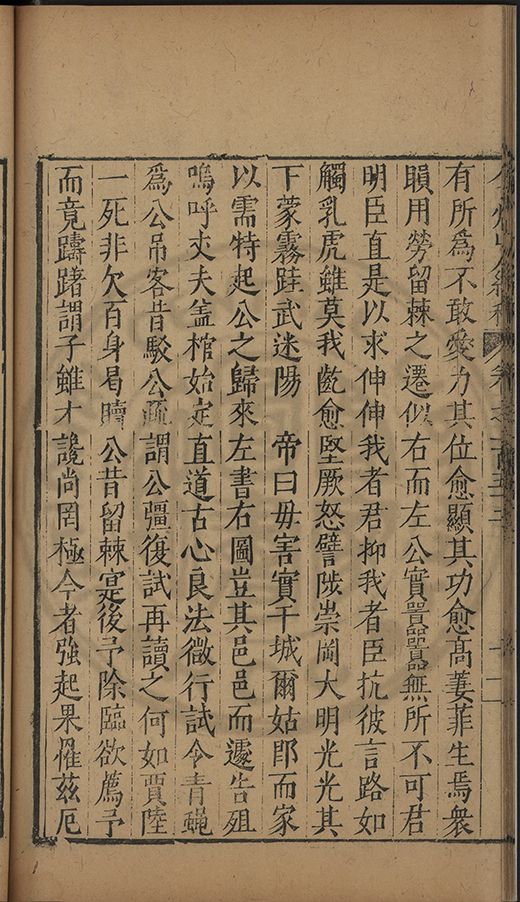 有所爲不敢愛力其位愈顯其功愈高萋菲生焉衆
瞋用勞留棘之遷似右而左公實囂囂無所不可君
明臣直是以求伸伸我者君抑我者臣抗彼言路如
觸乳虎雖莫我齕愈堅厥怒譬陟崇岡大明光光其
下蒙霧跬武迷陽　帝曰毋害實干城爾姑卽而家
以需特起公之歸來左書右圖豈其邑邑而遽告殂
嗚呼丈夫盖棺始定直道古心良法徽行試令青蠅
爲公吊客昔駁公疏謂公彊復試再讀之何如賈陸
一死非欠百身曷贖公昔留棘寔後予除臨欲薦予
而竟躊躇謂子雖才讒尚罔極今者強起果罹茲厄